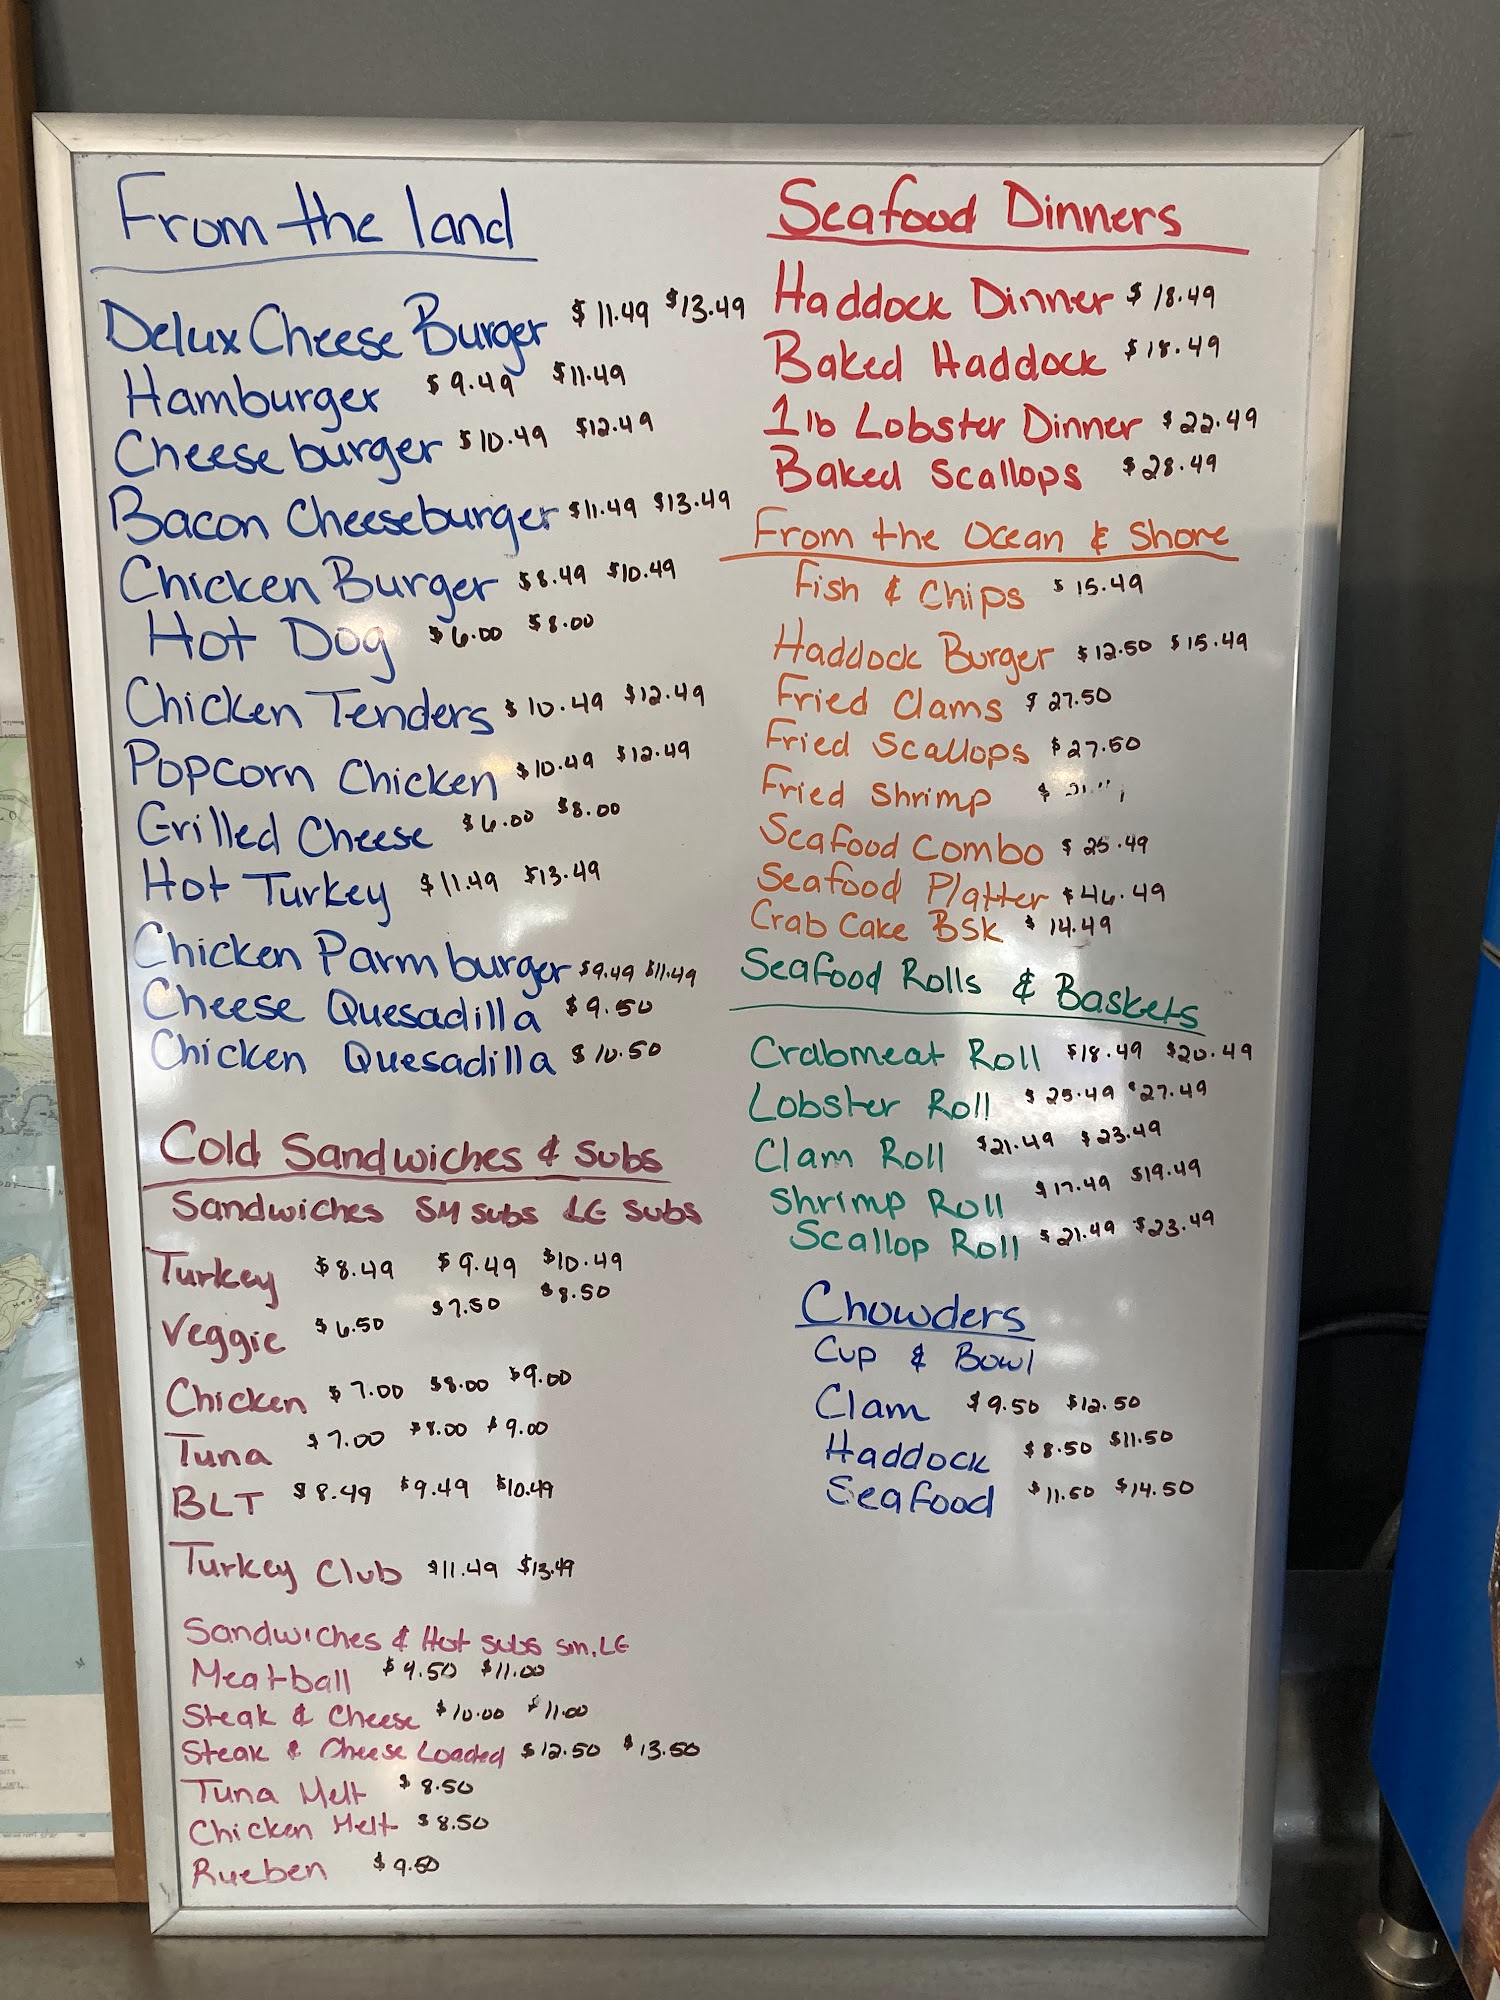 From the land
Delux Cheese Burger $11.49 $13.49
Hamburger $9.49 $11.49
Cheese burger $10.49 $12.49
Bacon Cheeseburger $11.49 $13.49
Chicken Burger $8.49 $10.49
Hot Dog $6.00 $8.00
Chicken Tenders $10.49 $12.49
Popcorn Chicken $10.49 $12.49
Grilled Cheese $6.00 $8.00
Hot Turkey $11.49 $13.49
Chicken Parm burger $9.49 $11.49
Cheese Quesadilla $9.50
Chicken Quesadilla $10.50
Cold Sandwiches & Subs
Sandwiches SM Subs LG Subs
Turkey $8.49 $9.49 $10.49
Veggie $6.50 $7.50 $8.50
Chicken $7.00 $8.00 $9.00
Tuna $7.00 $8.00 $9.00
BLT $8.49 $9.49 $10.49
Turkey Club $11.49 $13.49
Sandwiches & Hot subs sm, LG
Meatball $9.50 $11.00
Steak & Cheese $10.00 $11.00
Steak & Cheese Loaded $12.50 $13.50
Tuna Melt $8.50
Chicken Melt $8.50
Rueben $9.50
Seafood Dinners
Haddock Dinner $18.49
Baked Haddock $18.49
1 lb Lobster Dinner $22.49
Baked Scallops $28.49
From the Ocean & Shore
Fish & Chips $15.49
Haddock Burger $12.50 $15.49
Fried Clams $27.50
Fried Scallops $27.50
Fried Shrimp $
Seafood Combo $25.49
Seafood Platter $46.49
Crab Cake BSK $14.49
Seafood Rolls & Baskets
Crabmeat Roll $18.49 $20.49
Lobster Roll $25.49 $27.49
Clam Roll $21.49 $23.49
Shrimp Roll $17.49 $19.49
Scallop Roll $21.49 $23.49
Chowders
Cup & Bowl
Clam $9.50 $12.50
Haddock $8.50 $11.50
Seafood $11.50 $14.50